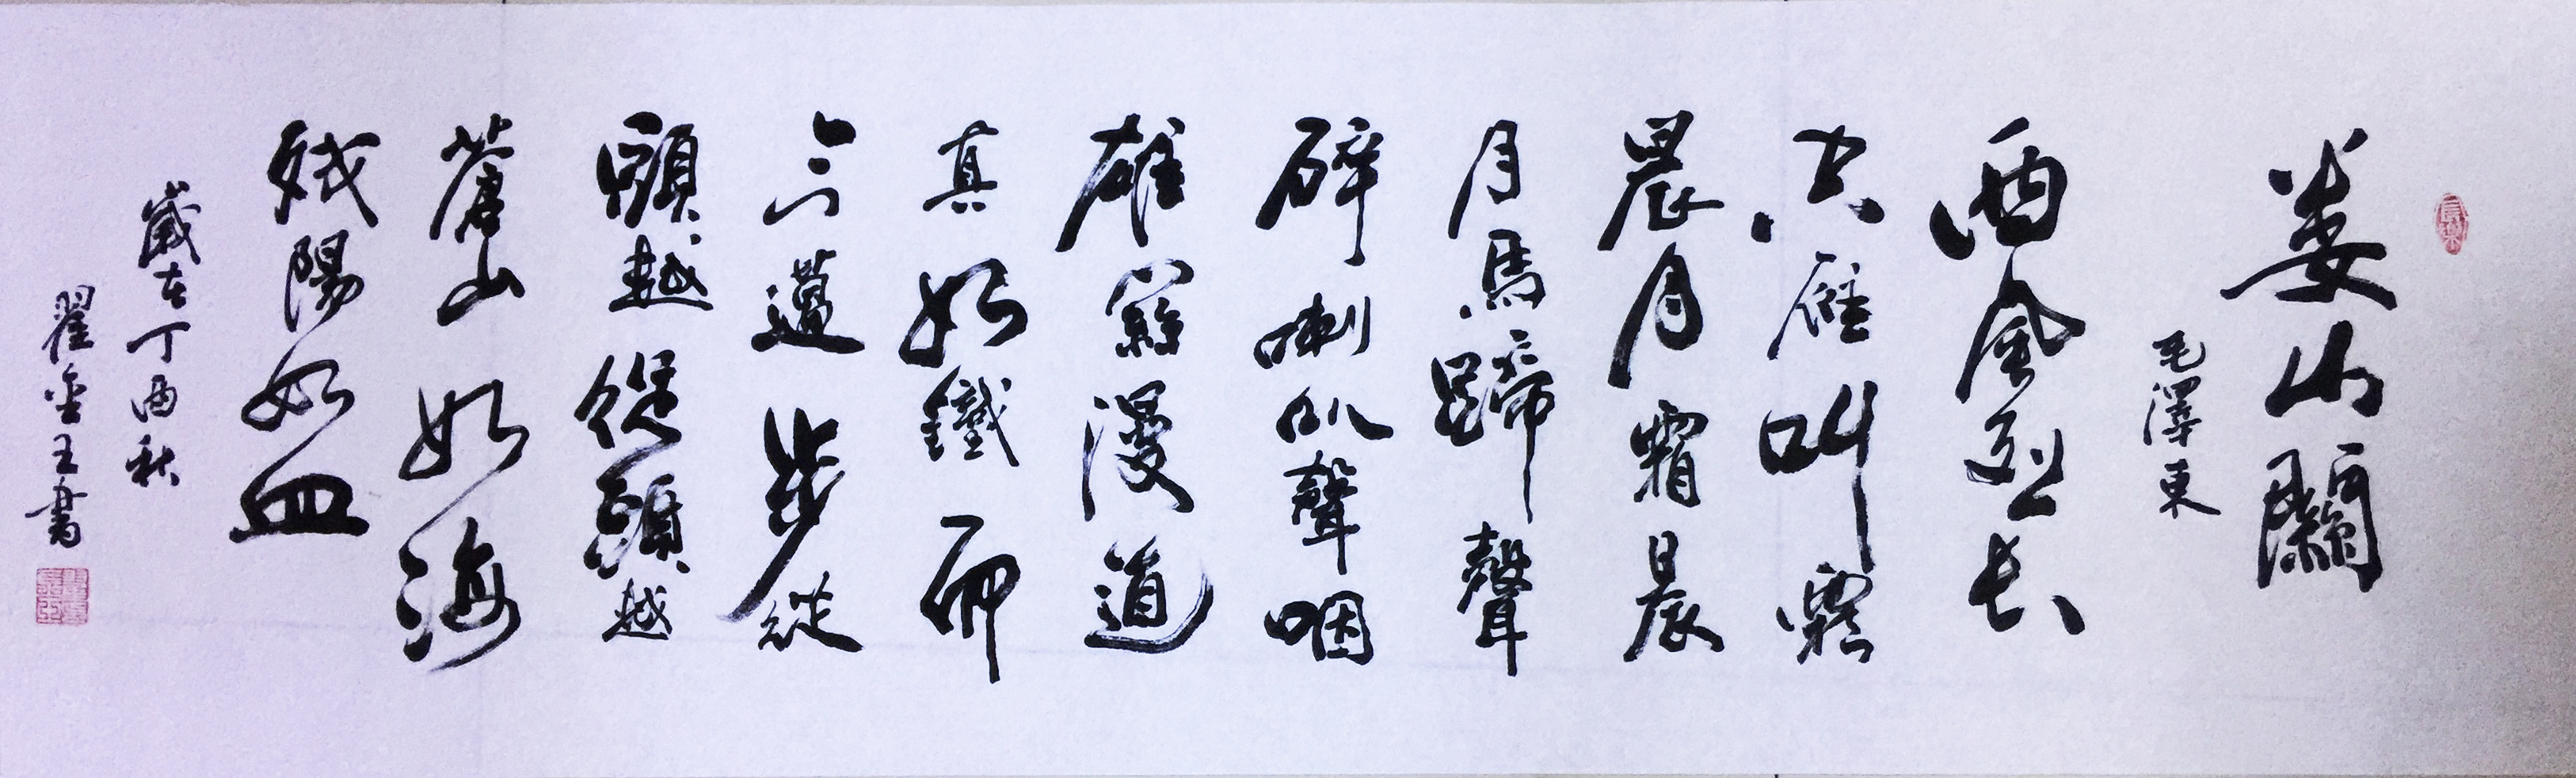 娄山關
毛澤東
西風烈长
空雁叫霜
晨月霜晨
月馬蹄聲
碎喇叭聲咽
雄關漫道
真如鐵而
今邁步從
頭越從頭越
蒼山如海
残陽如血
歲在丁酉秋
翟金王書